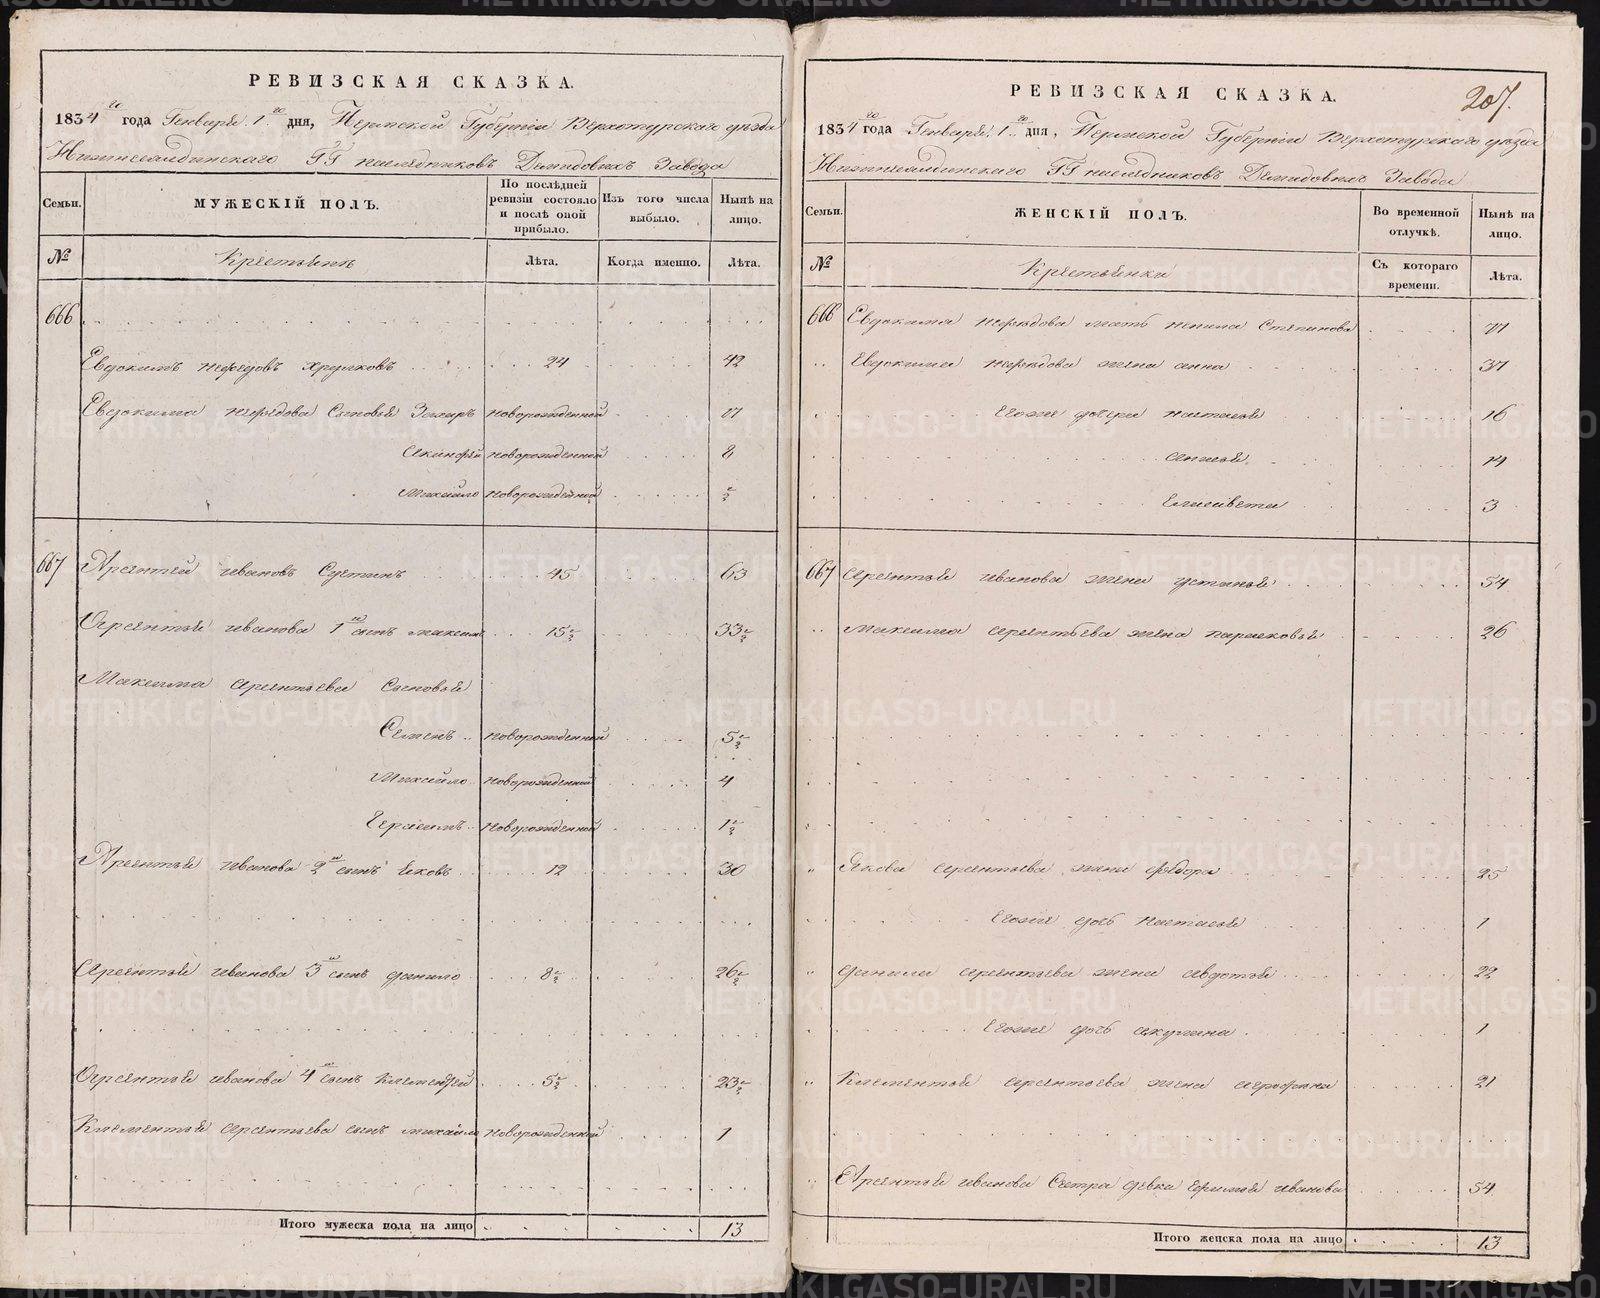 РЕВИЗСКАЯ СКАЗКА.
1834го года Генваря 1го дня, Пермской Губернии Верхотурского уезда
Нижнесалдинскаго ГГ наследниковъ Демидовыхъ Завода
Семьи.
МУЖЕСКІЙ ПОЛЪ.
По послѣдней ревизіи состояло и послѣ оной прибыло.
Изъ того числа выбыло.
Нынѣ на лицо.
№
Крестьянъ
Лѣта.
Когда именно.
Лѣта.
666
Евдокимъ Нефедовъ 24 42
Евдокима Нефедова Сыновья Захаръ новорожденной 17
Акинфей новорожденной 8
Михайло новорожденной ½
667 Арентей Ивановъ Сустинъ 45 63
Арентья Иванова 1й сынъ Максимъ 15½ 33½
Максима Арентьева Сыновья
Семенъ новорожденной 5½
Михайло новорожденной 4
Герасимъ новорожденной 1½
Арентья Иванова 2й сынъ Яковъ 12 30
Арентья Иванова 3й сынъ Данило 8½ 26½
Арентья Иванова 4й сынъ Клементей 5½ 23½
Клементья Арентьева сынъ Михайло новорожденной 1
Итого мужеска пола на лицо 13
207.
РЕВИЗСКАЯ СКАЗКА.
1834го года Генваря 1го дня, Пермской Губернии Верхотурского уезда
Нижнесалдинскаго ГГ наследниковъ Демидовыхъ Завода
Семьи.
ЖЕНСКІЙ ПОЛЪ.
Во временной отлучкѣ.
Нынѣ на лицо.
№
Крестьянки
Съ котораго времени.
Лѣта.
666 Евдокима Нефедова мать Ненила Степанова 77
Евдокима Нефедова жена Анна 37
Ихъ дочери Настасья 16
Анисья 14
Елисавета 3
667 Арентья Иванова жена Устинья 54
Максима Арентьева жена Парасковья 26
Якова Арентьева жена Федора 25
дочь Настасья 1
Данила Арентьева жена Авдотья 22
дочь Акулина 1
Клементья Арентьева жена Агрофена 21
Арентья Иванова Сестра девка Иванова 54
Итого женска пола на лицо 13
METRIKI.GASO-URAL.RU